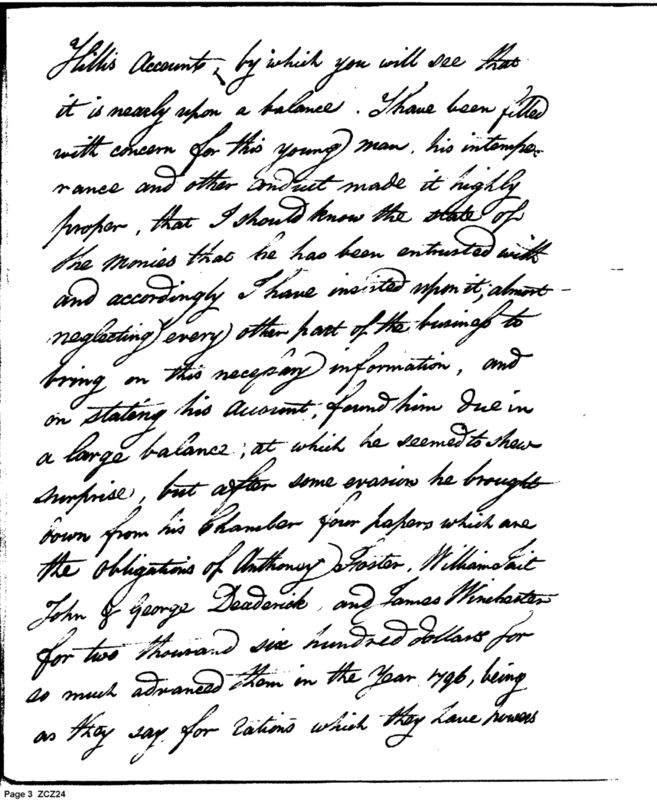 Hillis Accounts, by which you will see that
it is nearly upon a balance. I have been filled
with concern for this young man, his intempe-
rance and other conduct made it highly
proper, that I should know the state of
the monies that he has been entrusted with
and accordingly I have insisted upon it, almost
neglecting every other part of the business to
bring on this necessary information, and
on stating his account, found him due in
a large balance; at which he seemed to shew
surprise, but after some evasion he brought
down from his Chamber four papers which are
the obligations of Anthoney Foster, William Tait
John & George Deaderick, and James Winchester
for two thousand six hundred dollars for
so much advanced them in the Year 1796, being
as they say for rations which they have
Page 3 ZCZ24